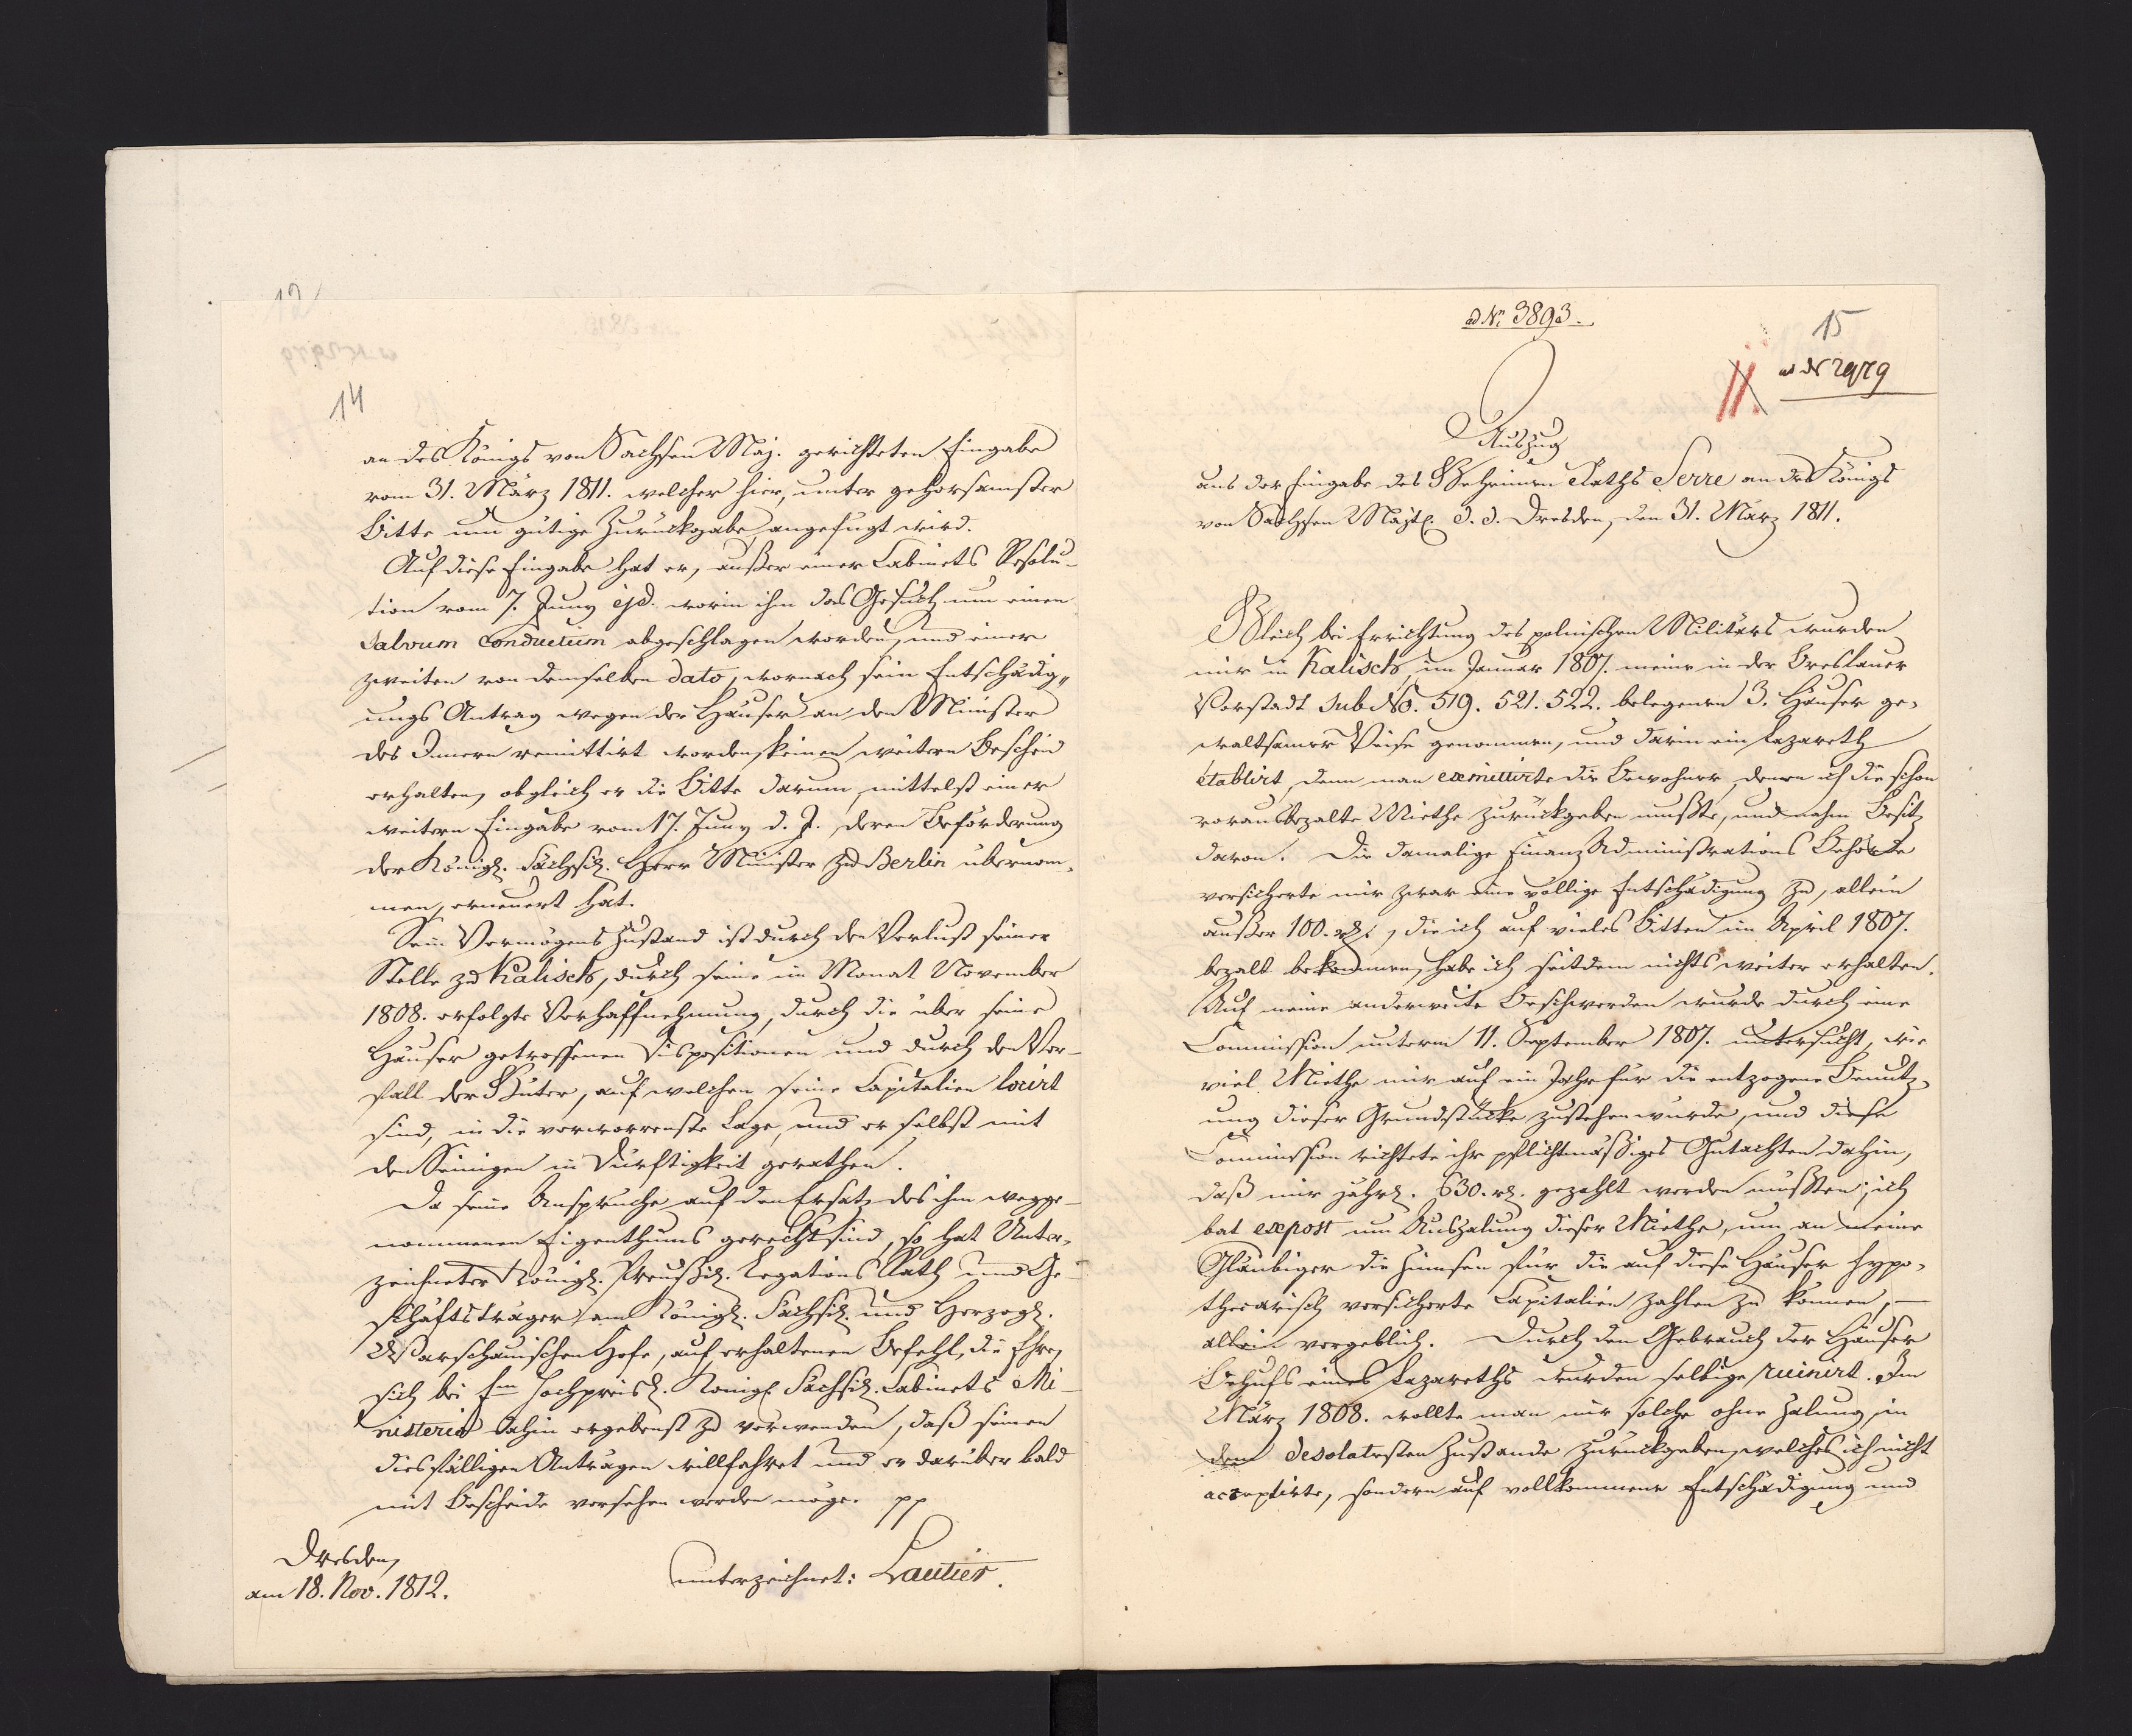 14
an des Königs von Sachsen Maj. gerichteten Eingabe
vom 31. März 1811. welcher hier, unter gehorsamster
Bitte um gütige Zurückgabe, angefügt wird.
Auf diese Eingabe hat er, außer einer Cabinets Resolu-
tion vom 7. Juny ejd. worin ihm das Gesuch um einen
Salvum Conductum abgeschlagen worden, und einer
zweiten von demselben dato, wornach sein Entschädig„
ungs Antrag wegen der Häuser an den Minister
des Innern remittirt worden, keinen weitern Bescheid
erhalten, obgleich er die Bitte darum, mittelst einer
weitern Eingabe vom 17. Juny d. J., deren Beförderung
der Königl. Sächsisch. Herr Minister zu Berlin übernom-
men, erneuert hat.
Sein Vermögens Zustand ist durch den Verlust seiner
Stelle zu Kalisch, durch seine im Monat November
1808. erfolgte Verhaftnehmung, durch die über seine
Häuser getroffenen Dispositionen und durch den Ver-
fall der Güter, auf welchen seine Capitalien locirt
sind, in die verworrenste Lage, und er selbst mit
den Seinigen in Dürftigkeit gerathen.
Da seine Ansprüche auf den Ersatz des ihm wegge-
nommenen Eigenthums gerecht sind, so hat Unter-
zeichneter Königl. Preußisch. Legations Rath und Ge-
schäftsträger am Königl. Sächsisch. und Herzogl.
Warschauischen Hofe, auf erhaltenen Befehl, die Ehre,
sich bei Em Hochpreisl. Königl. Sächsisch. Cabinets Mi-
nisterio dahin ergebenst zu verwenden, daß seinen
diesfälligen Anträgen willfahret und er darüber bald
mit Bescheide versehen werden möge. pp
Dresden,
am 18. Nov. 1812.
unterzeichnet: Lautier.
ad No 3893.
15
II.
Auszug
aus der Eingabe des Geheimen Raths Serre an des Königs
von Sachsen Majt. d. d. Dresden, den 31. März 1811.
Gleich bei Errichtung des polnischen Militärs wurden
mir in Kalisch, im Januar 1807. meine in der Breslauer
Vorstadt sub No. 519. 521. 522. belegenen 3. Häuser ge-
waltsamer Weise genommen, und darin ein Lazareth
etablirt, denn man exmittirte die Bewohner, denen ich die schon
vorausbezalte Miethe zurückgeben mußte, und nahm Besitz
davon. Die damalige Finanz Administrations Behörde
versicherte mir zwar eine völlige Entschädigung zu, allein
außer 100. rthl., die ich auf vieles Bitten im April 1807.
bezalt bekommen, habe ich seitdem nichts weiter erhalten.
Auf meine anderweite Beschwerden wurde durch eine
Commission unterm 11. September 1807. untersucht, wie
viel Miethe mir auf ein Jahr für die entzogene Benutz-
ung dieser Grundstücke zustehen würde, und diese
Commission richtete ihr pflichtmäßiges Gutachten dahin,
daß mir jährl. 630. rl. gezahlt werden müßten; ich
bat expost um Auszalung dieser Miethe, um an meine
Gläubiger die Zinnsen für die auf diese Häuser hypo-
thecarisch versicherte Capitalien zahlen zu können, —
allein vergeblich. Durch den Gebrauch der Häuser
Behufs eines Lazareths wurden selbige ruinirt. Im
März 1808. wollte man mir solche ohne Zalung, in
dem desolatesten Zustande zurückgeben, welches ich nicht
acceptirte, sondern auf vollkommene Entschädigung und